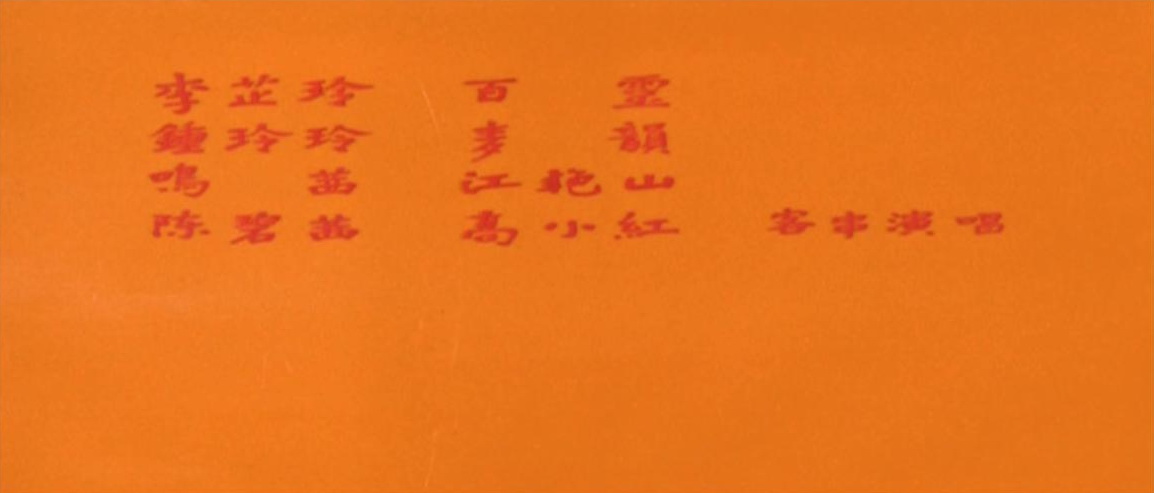 李芷玲 百靈
鍾玲玲 麥韻
鳴茜 江艷山
陈碧茜 高小紅 客串演唱